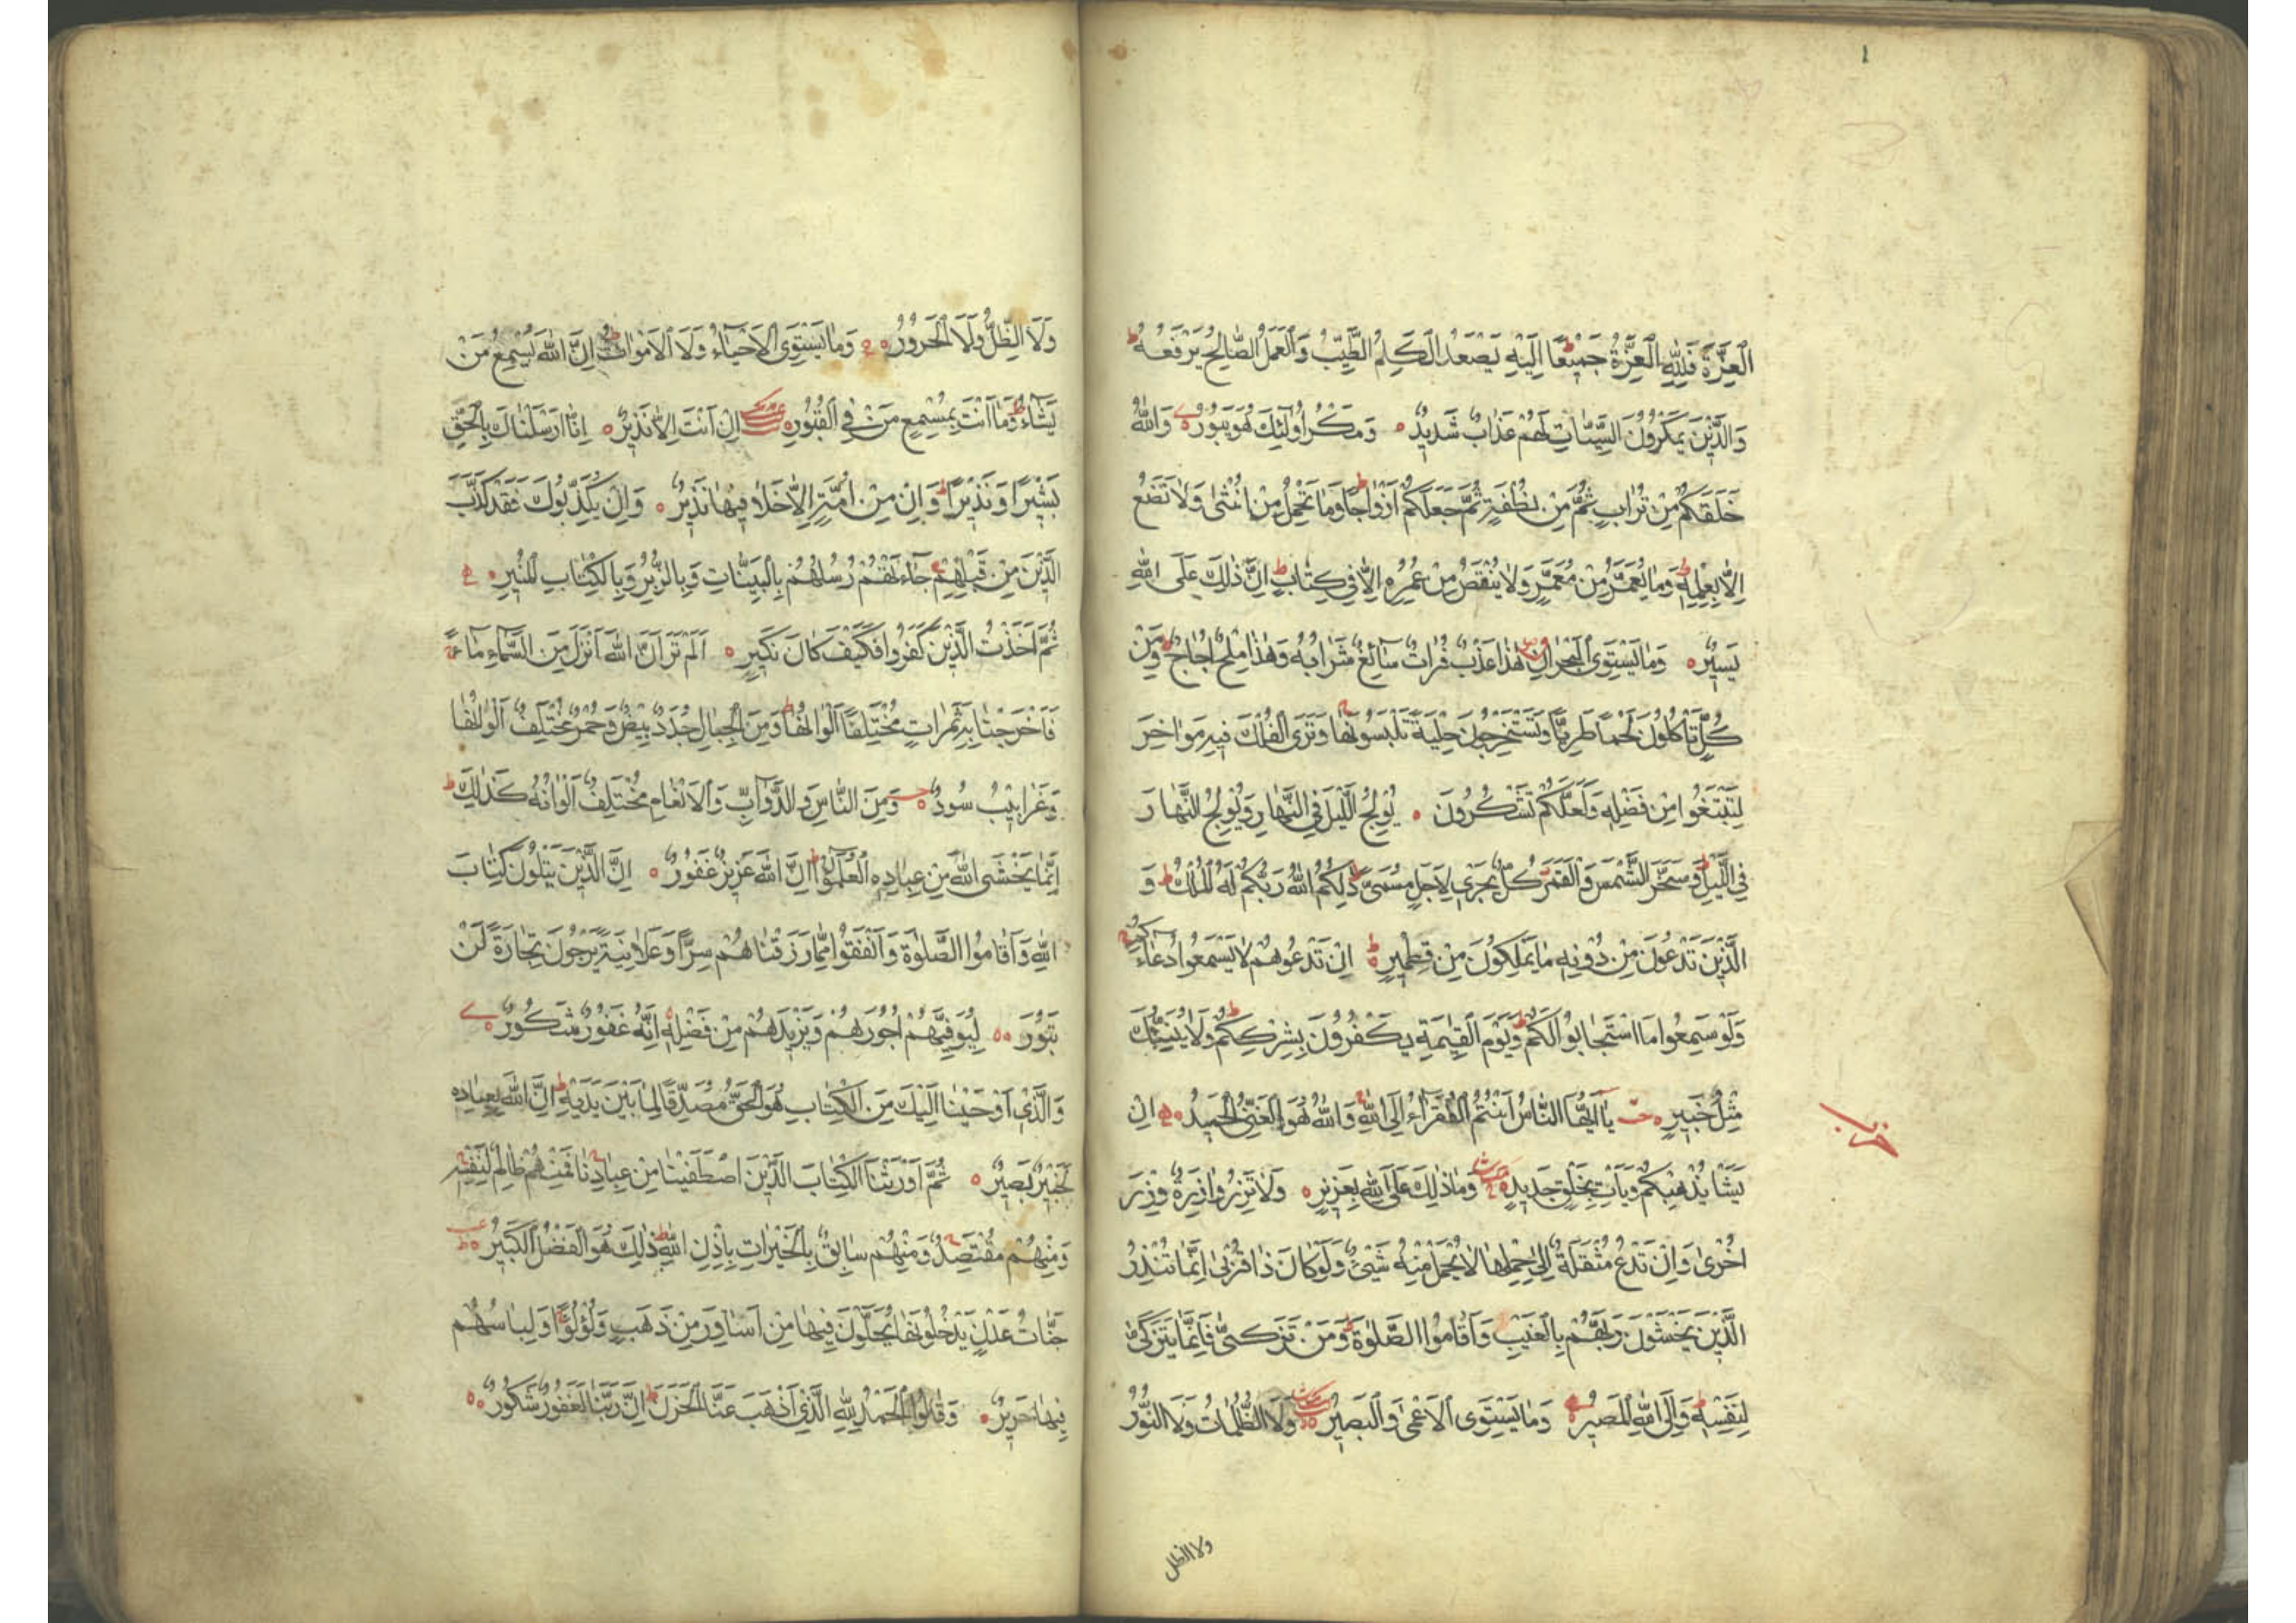 الْعِزَّةَ فَلِلّٰهِ الْعِزَّةُ جَمِيْعًا اِلَيْهِ يَصْعَدُ الْكَلِمُ الطَّيِّبُ وَالْعَمَلُ الصَّالِحُ يَرْفَعُهُ ط
وَالَّذِيْنَ يَمْكُرُوْنَ السَّيِّئَاتِ لَهُمْ عَذَابٌ شَدِيْدٌ ٥ وَمَكْرُ اُولٰئِكَ هُوَ يَبُوْرُ ٥ وَاللّٰهُ
خَلَقَكُمْ مِنْ تُرَابٍ ثُمَّ مِنْ نُطْفَةٍ ثُمَّ جَعَلَكُمْ اَزْوَاجًا ط وَمَا تَحْمِلُ مِنْ اُنْثٰى وَلَا تَضَعُ
اِلَّا بِعِلْمِهٖ ط وَمَا يُعَمَّرُ مِنْ مُعَمَّرٍ وَلَا يُنْقَصُ مِنْ عُمُرِهٖ اِلَّا فِي كِتَابٍ ط اِنَّ ذٰلِكَ عَلَى اللّٰهِ
يَسِيْرٌ ٥ وَمَا يَسْتَوِى الْبَحْرَانِ هٰذَا عَذْبٌ فُرَاتٌ سَآئِغٌ شَرَابُهُ وَهٰذَا مِلْحٌ اُجَاجٌ ط وَمِنْ
كُلٍّ تَأْكُلُوْنَ لَحْمًا طَرِيًّا وَتَسْتَخْرِجُوْنَ حِلْيَةً تَلْبَسُوْنَهَا وَتَرَى الْفُلْكَ فِيْهِ مَوَاخِرَ
لِتَبْتَغُوا مِنْ فَضْلِهٖ وَلَعَلَّكُمْ تَشْكُرُوْنَ ٥ يُوْلِجُ الَّيْلَ فِي النَّهَارِ وَيُوْلِجُ النَّهَارَ
فِي الَّيْلِ ط وَسَخَّرَ الشَّمْسَ وَالْقَمَرَ كُلٌّ يَجْرِي لِاَجَلٍ مُسَمًّى ط ذٰلِكُمُ اللّٰهُ رَبُّكُمْ لَهُ الْمُلْكُ ط وَ
الَّذِيْنَ تَدْعُوْنَ مِنْ دُوْنِهٖ مَا يَمْلِكُوْنَ مِنْ قِطْمِيْرٍ ٥ ط اِنْ تَدْعُوْهُمْ لَا يَسْمَعُوا دُعَآءَكُمْ
وَلَوْ سَمِعُوا مَا اسْتَجَابُوا لَكُمْ ط وَيَوْمَ الْقِيٰمَةِ يَكْفُرُوْنَ بِشِرْكِكُمْ ط وَلَا يُنَبِّئُكَ
مِثْلُ خَبِيْرٍ ٥ يَا اَيُّهَا النَّاسُ اَنْتُمُ الْفُقَرَآءُ اِلَى اللّٰهِ وَاللّٰهُ هُوَ الْغَنِيُّ الْحَمِيْدُ ٥ اِنْ
حزب
يَشَأْ يُذْهِبْكُمْ وَيَأْتِ بِخَلْقٍ جَدِيْدٍ ٥ وَمَا ذٰلِكَ عَلَى اللّٰهِ بِعَزِيْزٍ ٥ وَلَا تَزِرُ وَازِرَةٌ وِزْرَ
اُخْرٰى وَاِنْ تَدْعُ مُثْقَلَةٌ اِلٰى حِمْلِهَا لَا يُحْمَلْ مِنْهُ شَيْئٌ وَلَوْ كَانَ ذَا قُرْبٰى اِنَّمَا تُنْذِرُ
الَّذِيْنَ يَخْشَوْنَ رَبَّهُمْ بِالْغَيْبِ وَاَقَامُوا الصَّلٰوةَ ط وَمَنْ تَزَكّٰى فَاِنَّمَا يَتَزَكّٰى
لِنَفْسِهٖ ط وَاِلَى اللّٰهِ الْمَصِيْرُ ٥ وَمَا يَسْتَوِى الْاَعْمٰى وَالْبَصِيْرُ ٥ وَلَا الظُّلُمَاتُ وَلَا النُّوْرُ
ولا الظل
وَلَا الظِّلُّ وَلَا الْحَرُوْرُ ٥ وَمَا يَسْتَوِى الْاَحْيَآءُ وَلَا الْاَمْوَاتُ ط اِنَّ اللّٰهَ يُسْمِعُ مَنْ
يَشَآءُ ط وَمَا اَنْتَ بِمُسْمِعٍ مَنْ فِي الْقُبُوْرِ ٥ اِنْ اَنْتَ اِلَّا نَذِيْرٌ ٥ اِنَّا اَرْسَلْنَاكَ بِالْحَقِّ
بَشِيْرًا وَنَذِيْرًا ط وَاِنْ مِنْ اُمَّةٍ اِلَّا خَلَا فِيْهَا نَذِيْرٌ ٥ وَاِنْ يُكَذِّبُوْكَ فَقَدْ كَذَّبَ
الَّذِيْنَ مِنْ قَبْلِهِمْ ج جَآءَتْهُمْ رُسُلُهُمْ بِالْبَيِّنَاتِ وَبِالزُّبُرِ وَبِالْكِتَابِ الْمُنِيْرِ ٥
ثُمَّ اَخَذْتُ الَّذِيْنَ كَفَرُوا فَكَيْفَ كَانَ نَكِيْرِ ٥ اَلَمْ تَرَ اَنَّ اللّٰهَ اَنْزَلَ مِنَ السَّمَآءِ مَآءً
فَاَخْرَجْنَا بِهٖ ثَمَرَاتٍ مُخْتَلِفًا اَلْوَانُهَا ط وَمِنَ الْجِبَالِ جُدَدٌ بِيْضٌ وَحُمْرٌ مُخْتَلِفٌ اَلْوَانُهَا
وَغَرَابِيْبُ سُوْدٌ ٥ وَمِنَ النَّاسِ وَالدَّوَآبِّ وَالْاَنْعَامِ مُخْتَلِفٌ اَلْوَانُهُ كَذٰلِكَ ط
اِنَّمَا يَخْشَى اللّٰهَ مِنْ عِبَادِهِ الْعُلَمٰٓؤُا ط اِنَّ اللّٰهَ عَزِيْزٌ غَفُوْرٌ ٥ اِنَّ الَّذِيْنَ يَتْلُوْنَ كِتَابَ
اللّٰهِ وَاَقَامُوا الصَّلٰوةَ وَاَنْفَقُوْا مِمَّا رَزَقْنَاهُمْ سِرًّا وَعَلَانِيَةً يَرْجُوْنَ تِجَارَةً لَنْ
تَبُوْرَ ٥٥ لِيُوَفِّيَهُمْ اُجُوْرَهُمْ وَيَزِيْدَهُمْ مِنْ فَضْلِهٖ اِنَّهُ غَفُوْرٌ شَكُوْرٌ ٥
وَالَّذِي اَوْحَيْنَا اِلَيْكَ مِنَ الْكِتَابِ هُوَ الْحَقُّ مُصَدِّقًا لِمَا بَيْنَ يَدَيْهِ ط اِنَّ اللّٰهَ بِعِبَادِهٖ
لَخَبِيْرٌ بَصِيْرٌ ٥ ثُمَّ اَوْرَثْنَا الْكِتَابَ الَّذِيْنَ اصْطَفَيْنَا مِنْ عِبَادِنَا فَمِنْهُمْ ظَالِمٌ لِنَفْسِهٖ
وَمِنْهُمْ مُقْتَصِدٌ وَمِنْهُمْ سَابِقٌ بِالْخَيْرَاتِ بِاِذْنِ اللّٰهِ ط ذٰلِكَ هُوَ الْفَضْلُ الْكَبِيْرُ ٥ ط
جَنَّاتُ عَدْنٍ يَدْخُلُوْنَهَا يُحَلَّوْنَ فِيْهَا مِنْ اَسَاوِرَ مِنْ ذَهَبٍ وَلُؤْلُؤًا وَلِبَاسُهُمْ
فِيْهَا حَرِيْرٌ ٥ وَقَالُوا الْحَمْدُ لِلّٰهِ الَّذِي اَذْهَبَ عَنَّا الْحَزَنَ ط اِنَّ رَبَّنَا لَغَفُوْرٌ شَكُوْرٌ ٥٥